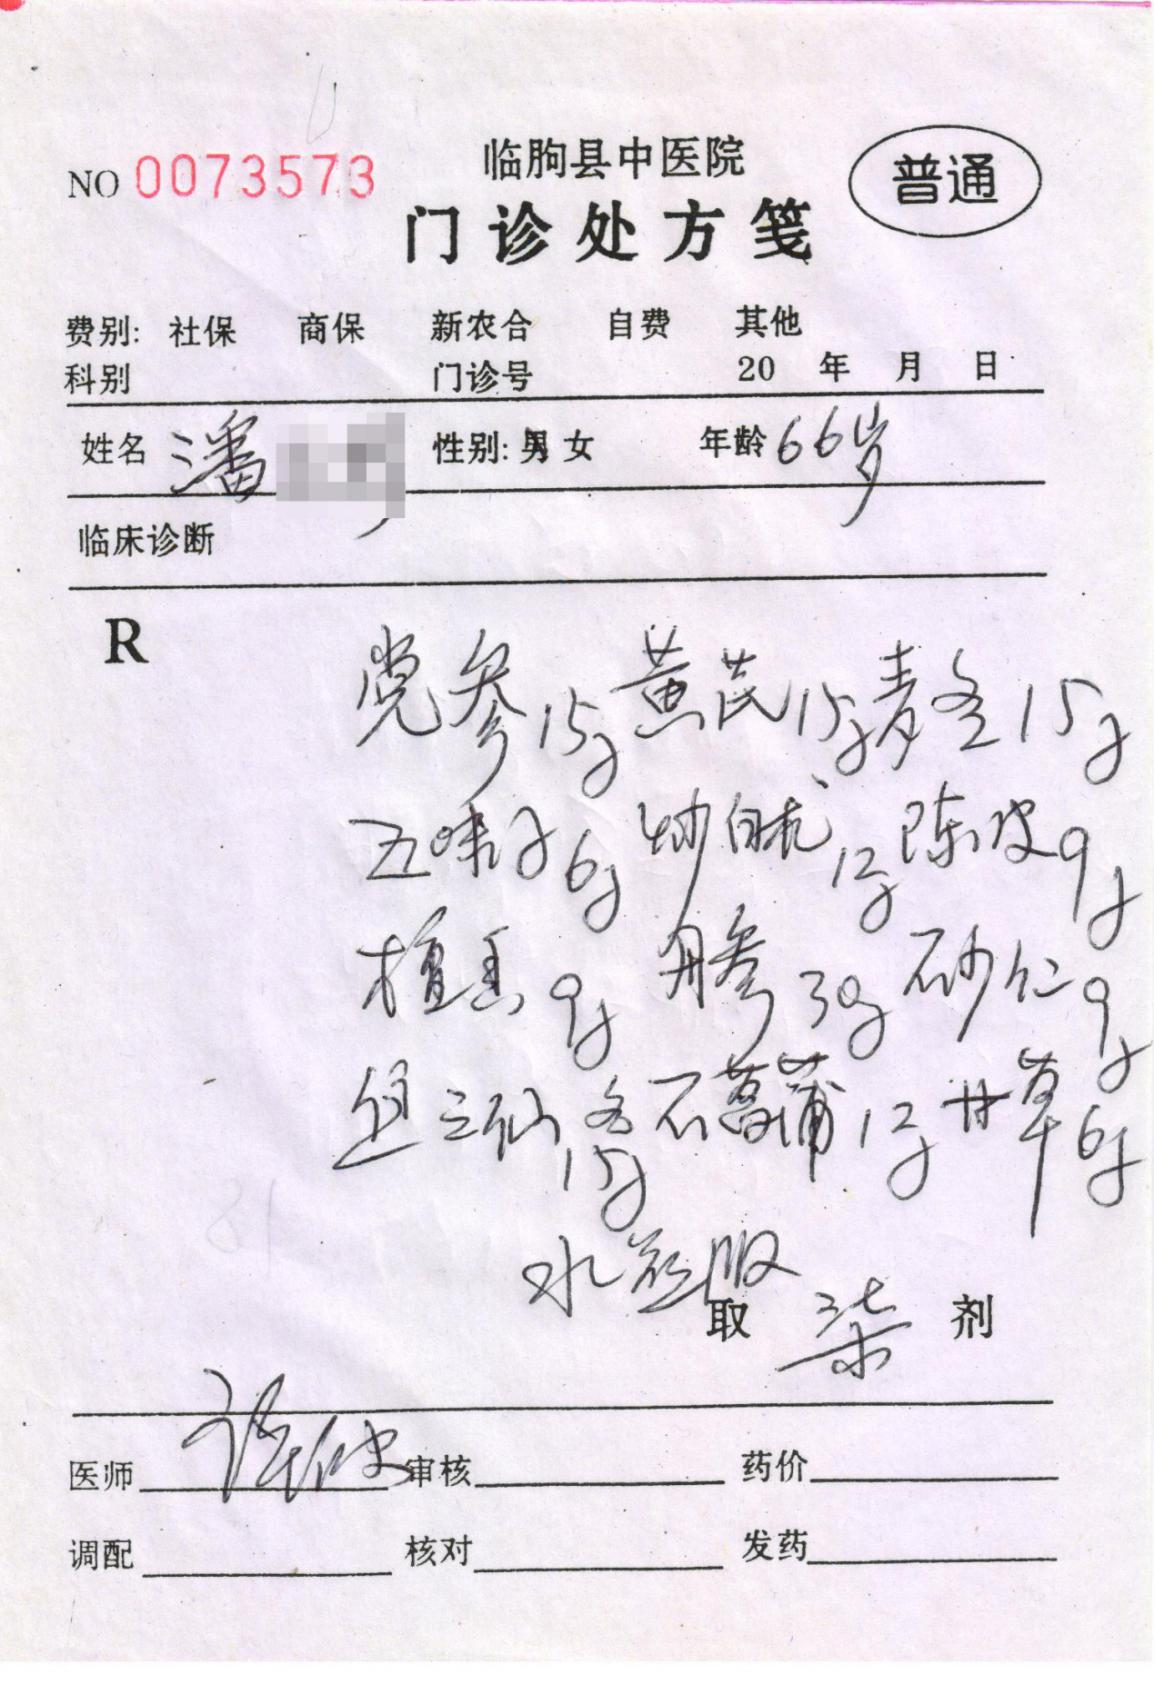 临朐县中医院
普通
NO 0073573
门诊处方笺
费别: 社保 商保 新农合 自费 其他
科别 门诊号 20 年 月 日
姓名 潘 性别: 男 女 年龄 66岁
临床诊断
R
党参15g 黄芪15g 麦冬15g
五味子6g 炒白术12g 陈皮9g
檀香9g 丹参30g 砂仁9g
焦三仙各15g 石菖蒲12g 甘草6g
水煎服
取 柒 剂
医师 审核 药价
调配 核对 发药